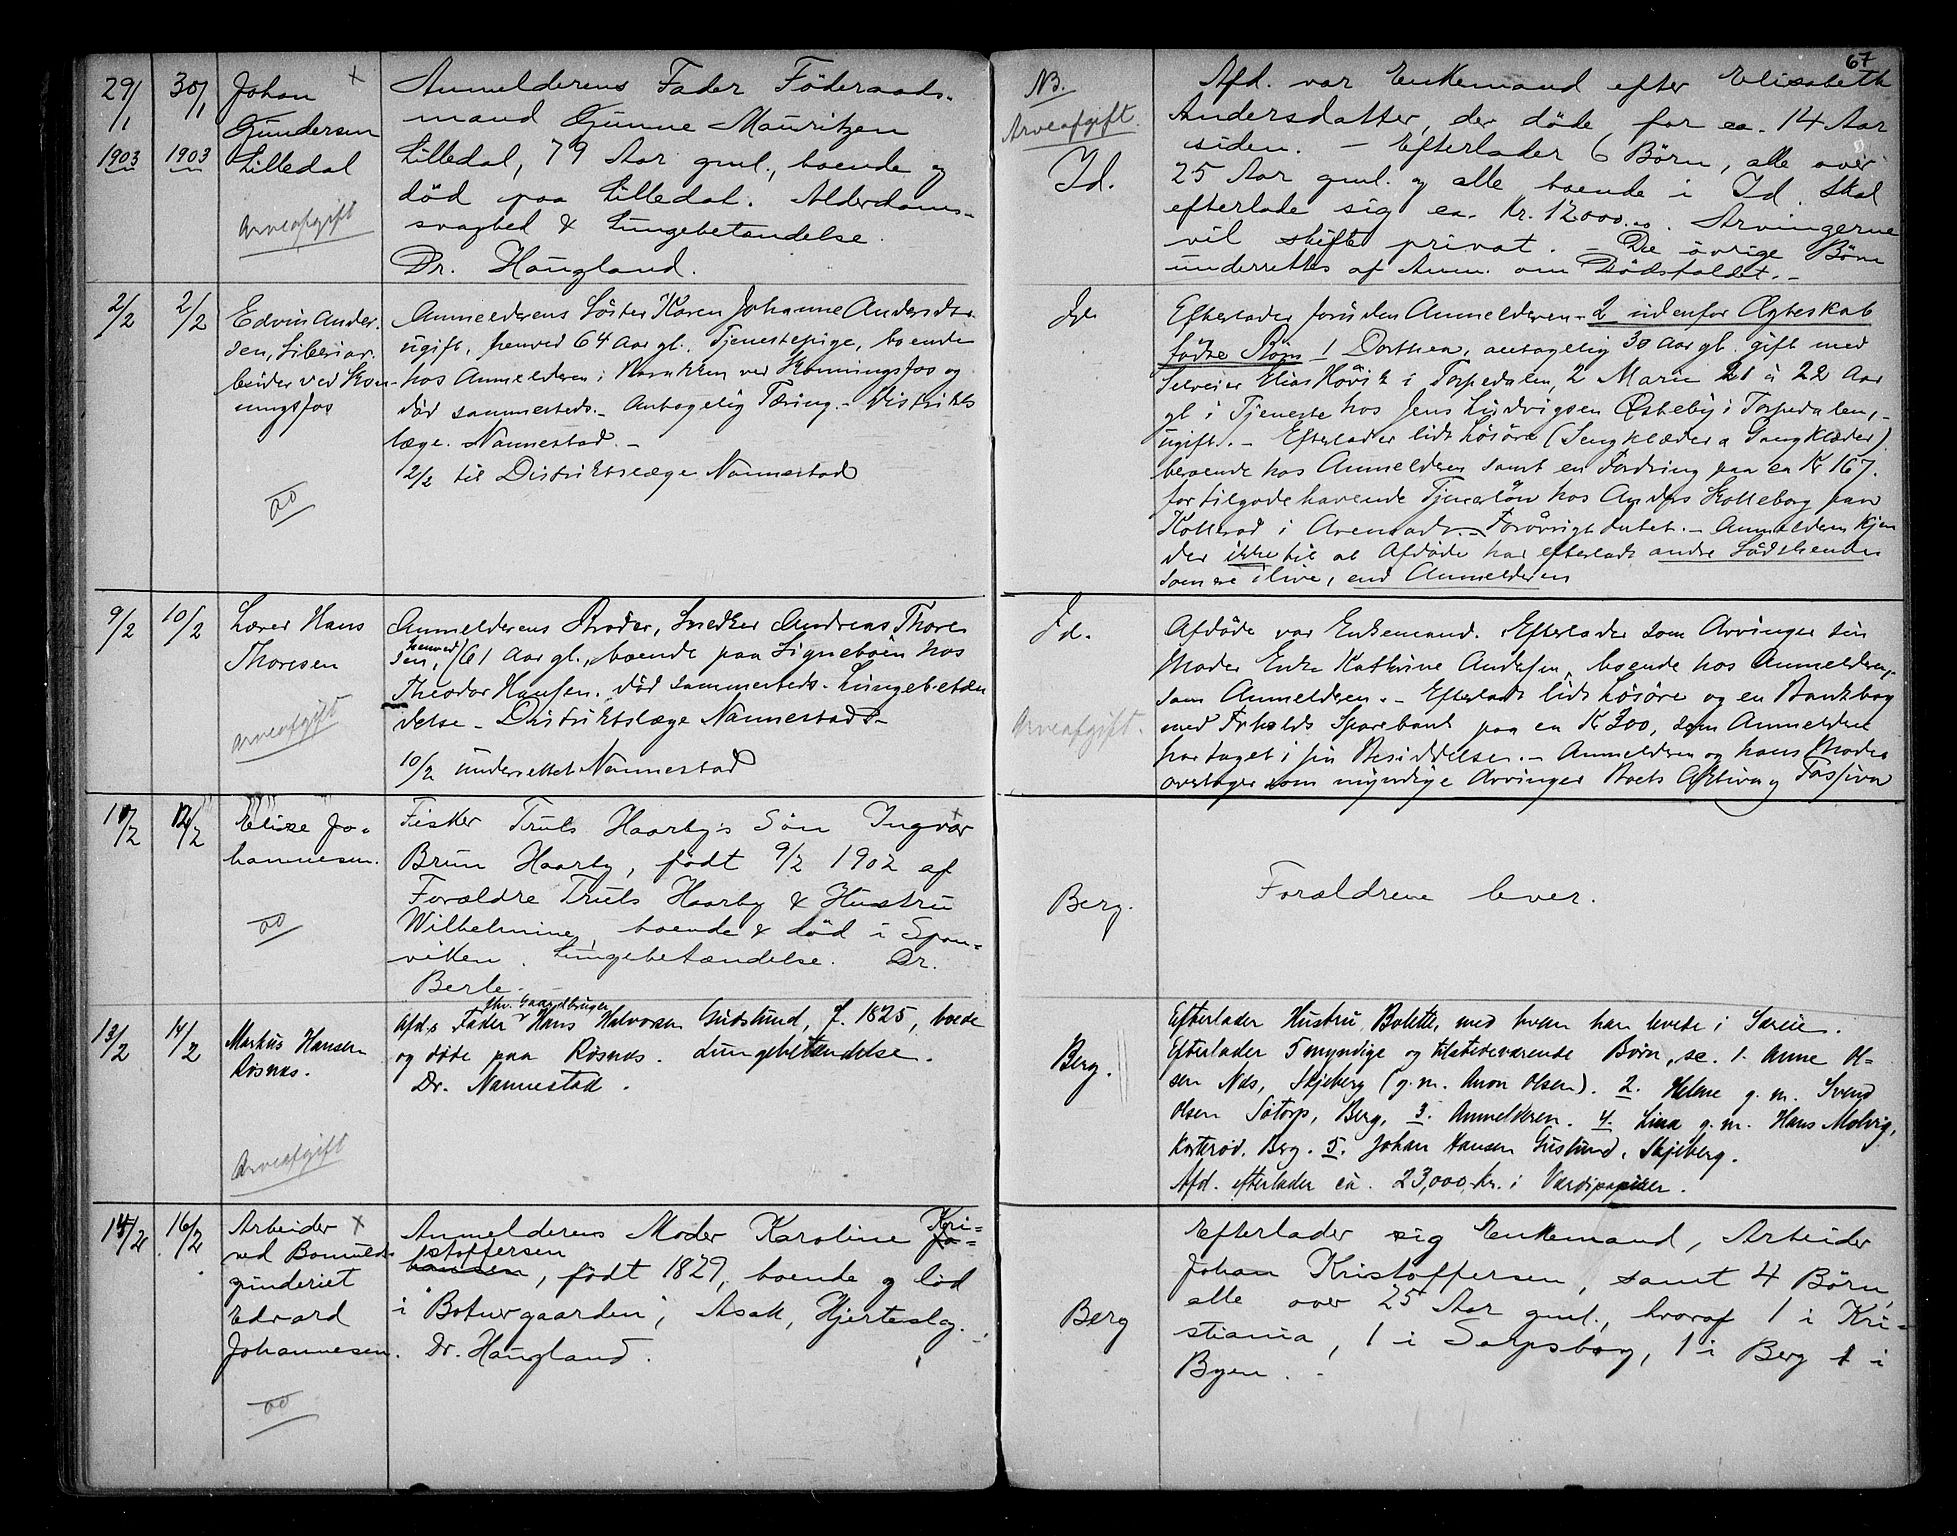 67
29/1 1903
30/1 1903
Johan
Gundersen
Lilledal
Arveafgift
Anmelderens Fader Föderaads-
mand Gunne Mauritzen
Lilledal, 79 Aar gml., boende og
död paa Lilledal. Alderdoms-
svaghed & Lungebetændelse.
Dr. Haugland.
NB.
Arveafgift.
Id.
Afd. var Enkemand efter Elisabeth
Andersdatter, der döde for ca. 14 Aar
siden. - Efterlader 6 Börn, alle over
25 Aar gml. og alle boende i Id. Skal
efterlade sig ca. Kr. 12000.00. Arvingerne
vil skifte privat. - De övrige Börn
underrettes af Anm. om Dödsfaldet. -
2/2
2/2
Edvin Ander-
sen,
besider ved Kon-
ningsfos
Anmelderens Söster Karen Johanne Andersdtr
ugift, henved 64 Aar gl. Tjenestepige, boende
hos Anmelderen i ved Konningsfos og
död sammesteds. - Antagelig Tæring. - Distrikts
læge Nannestad. -
2/2 til Distriktslæge Nannestad
Id.
Efterlader foruden Anmelderen - 2 udenfor Ægteskab
födte Börn 1 Dorthea, antagelig 30 Aar gl. gift med
Selveier Elias Hövik i Torpedalen, 2 Marie 21 à 22 Aar
gl i Tjeneste hos Jens Ludvigsen Østeby i Torpedalen, -
ugift. - Efterlader lidt Lösöre (Sengklæder & Gangklæder)
beroende hos Anmelderen samt en Fordring paa ca Kr 167.
for tilgodehavende Tjenerlön hos Anders paa
i Aremark. - Forövrigt Intet. - Anmelderen kjen
der ikke til at Afdöde har efterladt andre Södskende
som ere ilive, end Anmelderen
9/2
10/2
Lærer Hans
Thoresen
Arveafgift
Anmelderens Broder, Snedker Andreas Thore
sen, henved 61 Aar gl., boende paa Signeböen hos
Theodor Hansen. död sammesteds. Lungebetæn
delse - Distriktslæge Nannestad -
10/2 underrettet Nannestad
Id.
Arveafgift.
Afdöde var Enkemand. Efterlader som Arvinger sin
Moder Enke Kathrine Andersen, boende hos Anmelderen,
samt Anmelderen. - Efterladt lidt Lösöre og en Bankbog
med Fr.halds Sparebank paa ca Kr 300, som Anmelderen
har taget i sin Besiddelse. - Anmelderen og hans Moder
overtager som myndige Arvinger Boets Aktiva og Passiva
11/2
12/2
Elise Jo-
hannesen.
Fisker Truls Haarby's Sön Ingvar
Brun Haarby, födt 9/2 1902 af
Forældre Truls Haarby & Hustru
Wilhelmine, boende & död i Spon-
viken. Lungebetændelse. Dr.
Berle. -
Berg.
Forældrene lever.
13/2
14/2
Markus Hansen
Rösnæs.
Arveafgift
fhv. Gaardbruger
Afd.s Fader Hans Halvorsen Guslund, f. 1825, boede
og döde paa Rösnæs. Lungebetændelse.
Dr. Nannestad.
Berg.
Efterlader Hustru Bolette, med hvem han levede i Særeie.
Efterlader 5 myndige og tilstedeværende Börn, sc. 1. Anne Ol-
sen Næs, Skjeberg (g.m. Anon Olsen). 2. Helene g.m. Svend
Olsen Sötorp, Berg, 3. Anmelderen. 4. Lina g.m. Hans Molvig,
Korterød, Berg. 5. Johan Hansen Guslund, Skjeberg.
Afd. efterlader ca. 23,000 kr. i Værdipapirer.
15/2
16/2
Arbeider
ved Bomulds-
spinderiet
Edvard
Johannesen.
Anmelderens Moder Karoline Kri-
stoffersen
hansen, födt 1829, boende og död
i "Botnergaarden", Asak, Hjerteslag. -
Dr. Haugland.
Berg
Efterlader sig Enkemand, Arbeider
Johan Kristoffersen, samt 4 Börn,
alle over 25 Aar gml., hvoraf 1 i Kri-
stiania, 1 i Sarpsborg, 1 i Berg 1 i
Byen. -